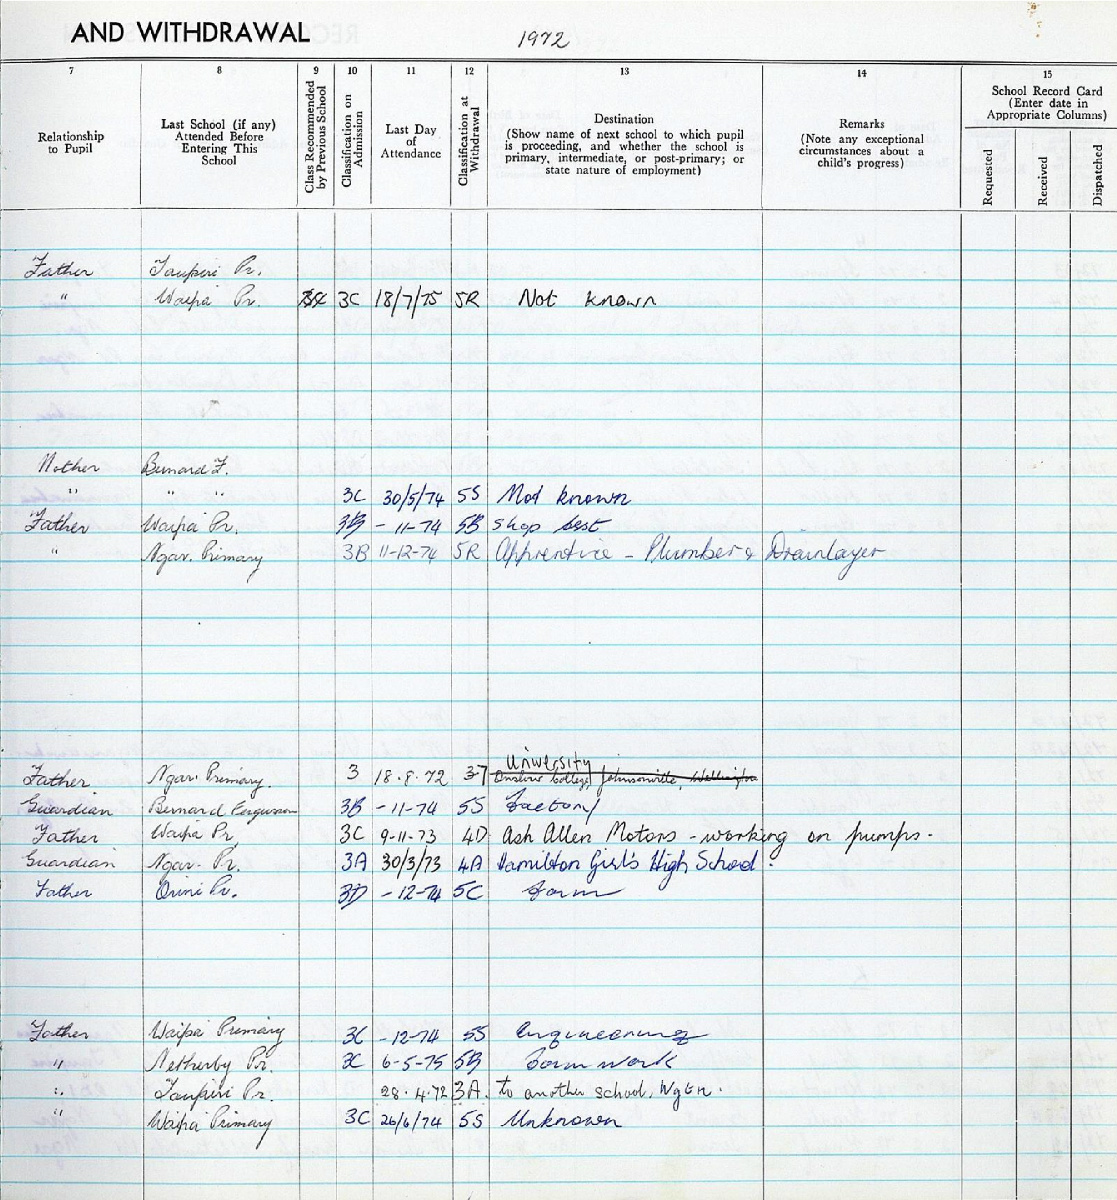 AND WITHDRAWAL 1972
7 8 9 10 11 12 13 14 15
Relationship to Pupil
Last School (if any) Attended Before Entering This School
Class Recommended by Previous School
Classification on Admission
Last Day of Attendance
Classification at Withdrawal
Destination
(Show name of next school to which pupil is proceeding, and whether the school is primary, intermediate, or post-primary; or state nature of employment)
Remarks
(Note any exceptional circumstances about a child's progress)
School Record Card
(Enter date in Appropriate Columns)
Requested Received Dispatched
Father Taupiri Pr.
" Waipa Pr. 3C 18/7/75 5R Not known
Mother Bernard F.
" " " 3C 30/5/74 5S Not known
Father Waipa Pr. 3B - 11-74 5B Shop asst
" Ngar. Primary 3B 11-12-74 5R Apprentice - Plumber & Drainlayer
University
Father. Ngar. Primary. 3 18.8.72 37 Onslow College, Johnsonville, Wellington
Guardian Bernard Ferguson 3B - 11-74 5S Factory
Father Waipa Pr 3C 9-11-73 4D Ash Allen Motors - working on pumps.
Guardian Ngar. Pr. 3A 30/3/73 4A Hamilton Girl's High School.
Father Orini Pr. 3D - 12-74 5C Farm
Father Waipa Primary 3C - 12-74 5S Engineering
" Netherby Pr. 3C 6-5-75 5B Farm work
" Taupiri Pr. 28.4.72 3A. to another school, Wgtn.
" Waipa Primary 3C 26/6/74 5S Unknown